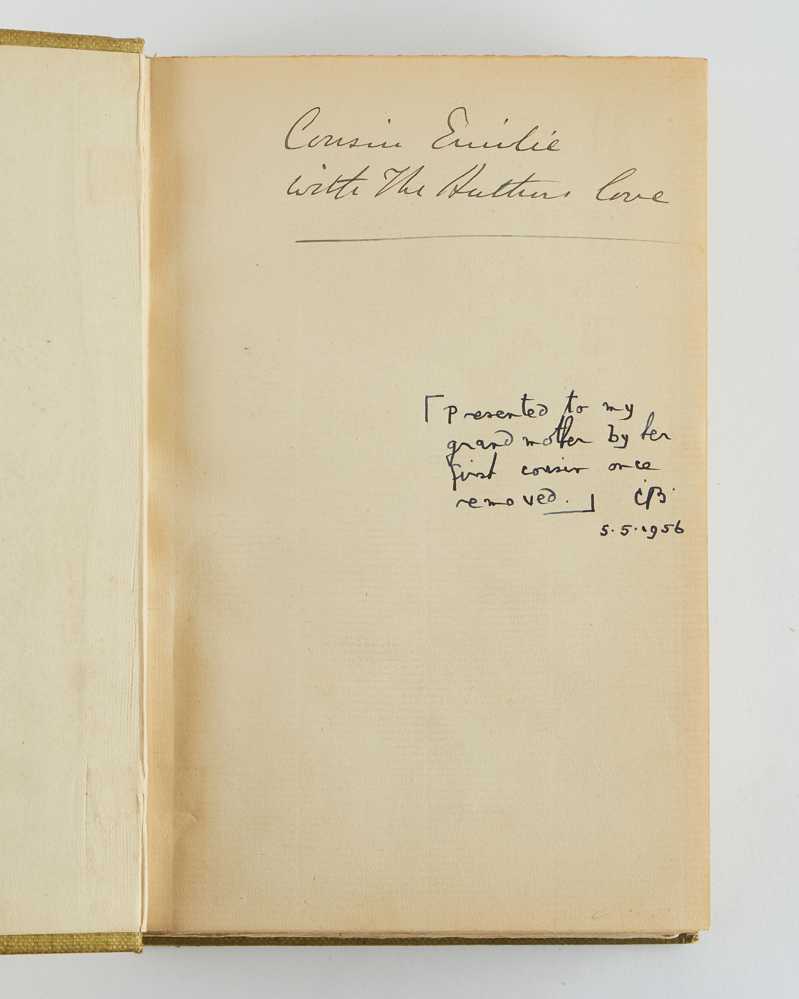 Cousin Emilie
with The Authors love
「presented to my
grandmother by her
first cousin once
removed.」 C.B.
5.5.1956